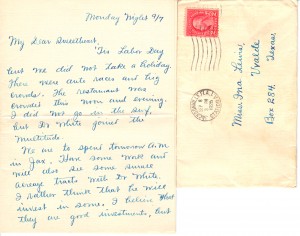 Monday Night 9/7
My Dear Sweetheart,
'Tis Labor Day
but we did not take a holiday.
There were auto races and big
crowds. The restaurant was
crowded this noon and evening.
I did not go in the surf,
but Dr White joined the
multitude.
We are to spend tomorrow A.M.
in Gal. Have some work and
will also see some small
acreage tracts with Dr White.
I rather think that he will
invest in some. I believe that
they are good investments, but
Miss Iva Lewis,
Uvalde
Box 284. Texas